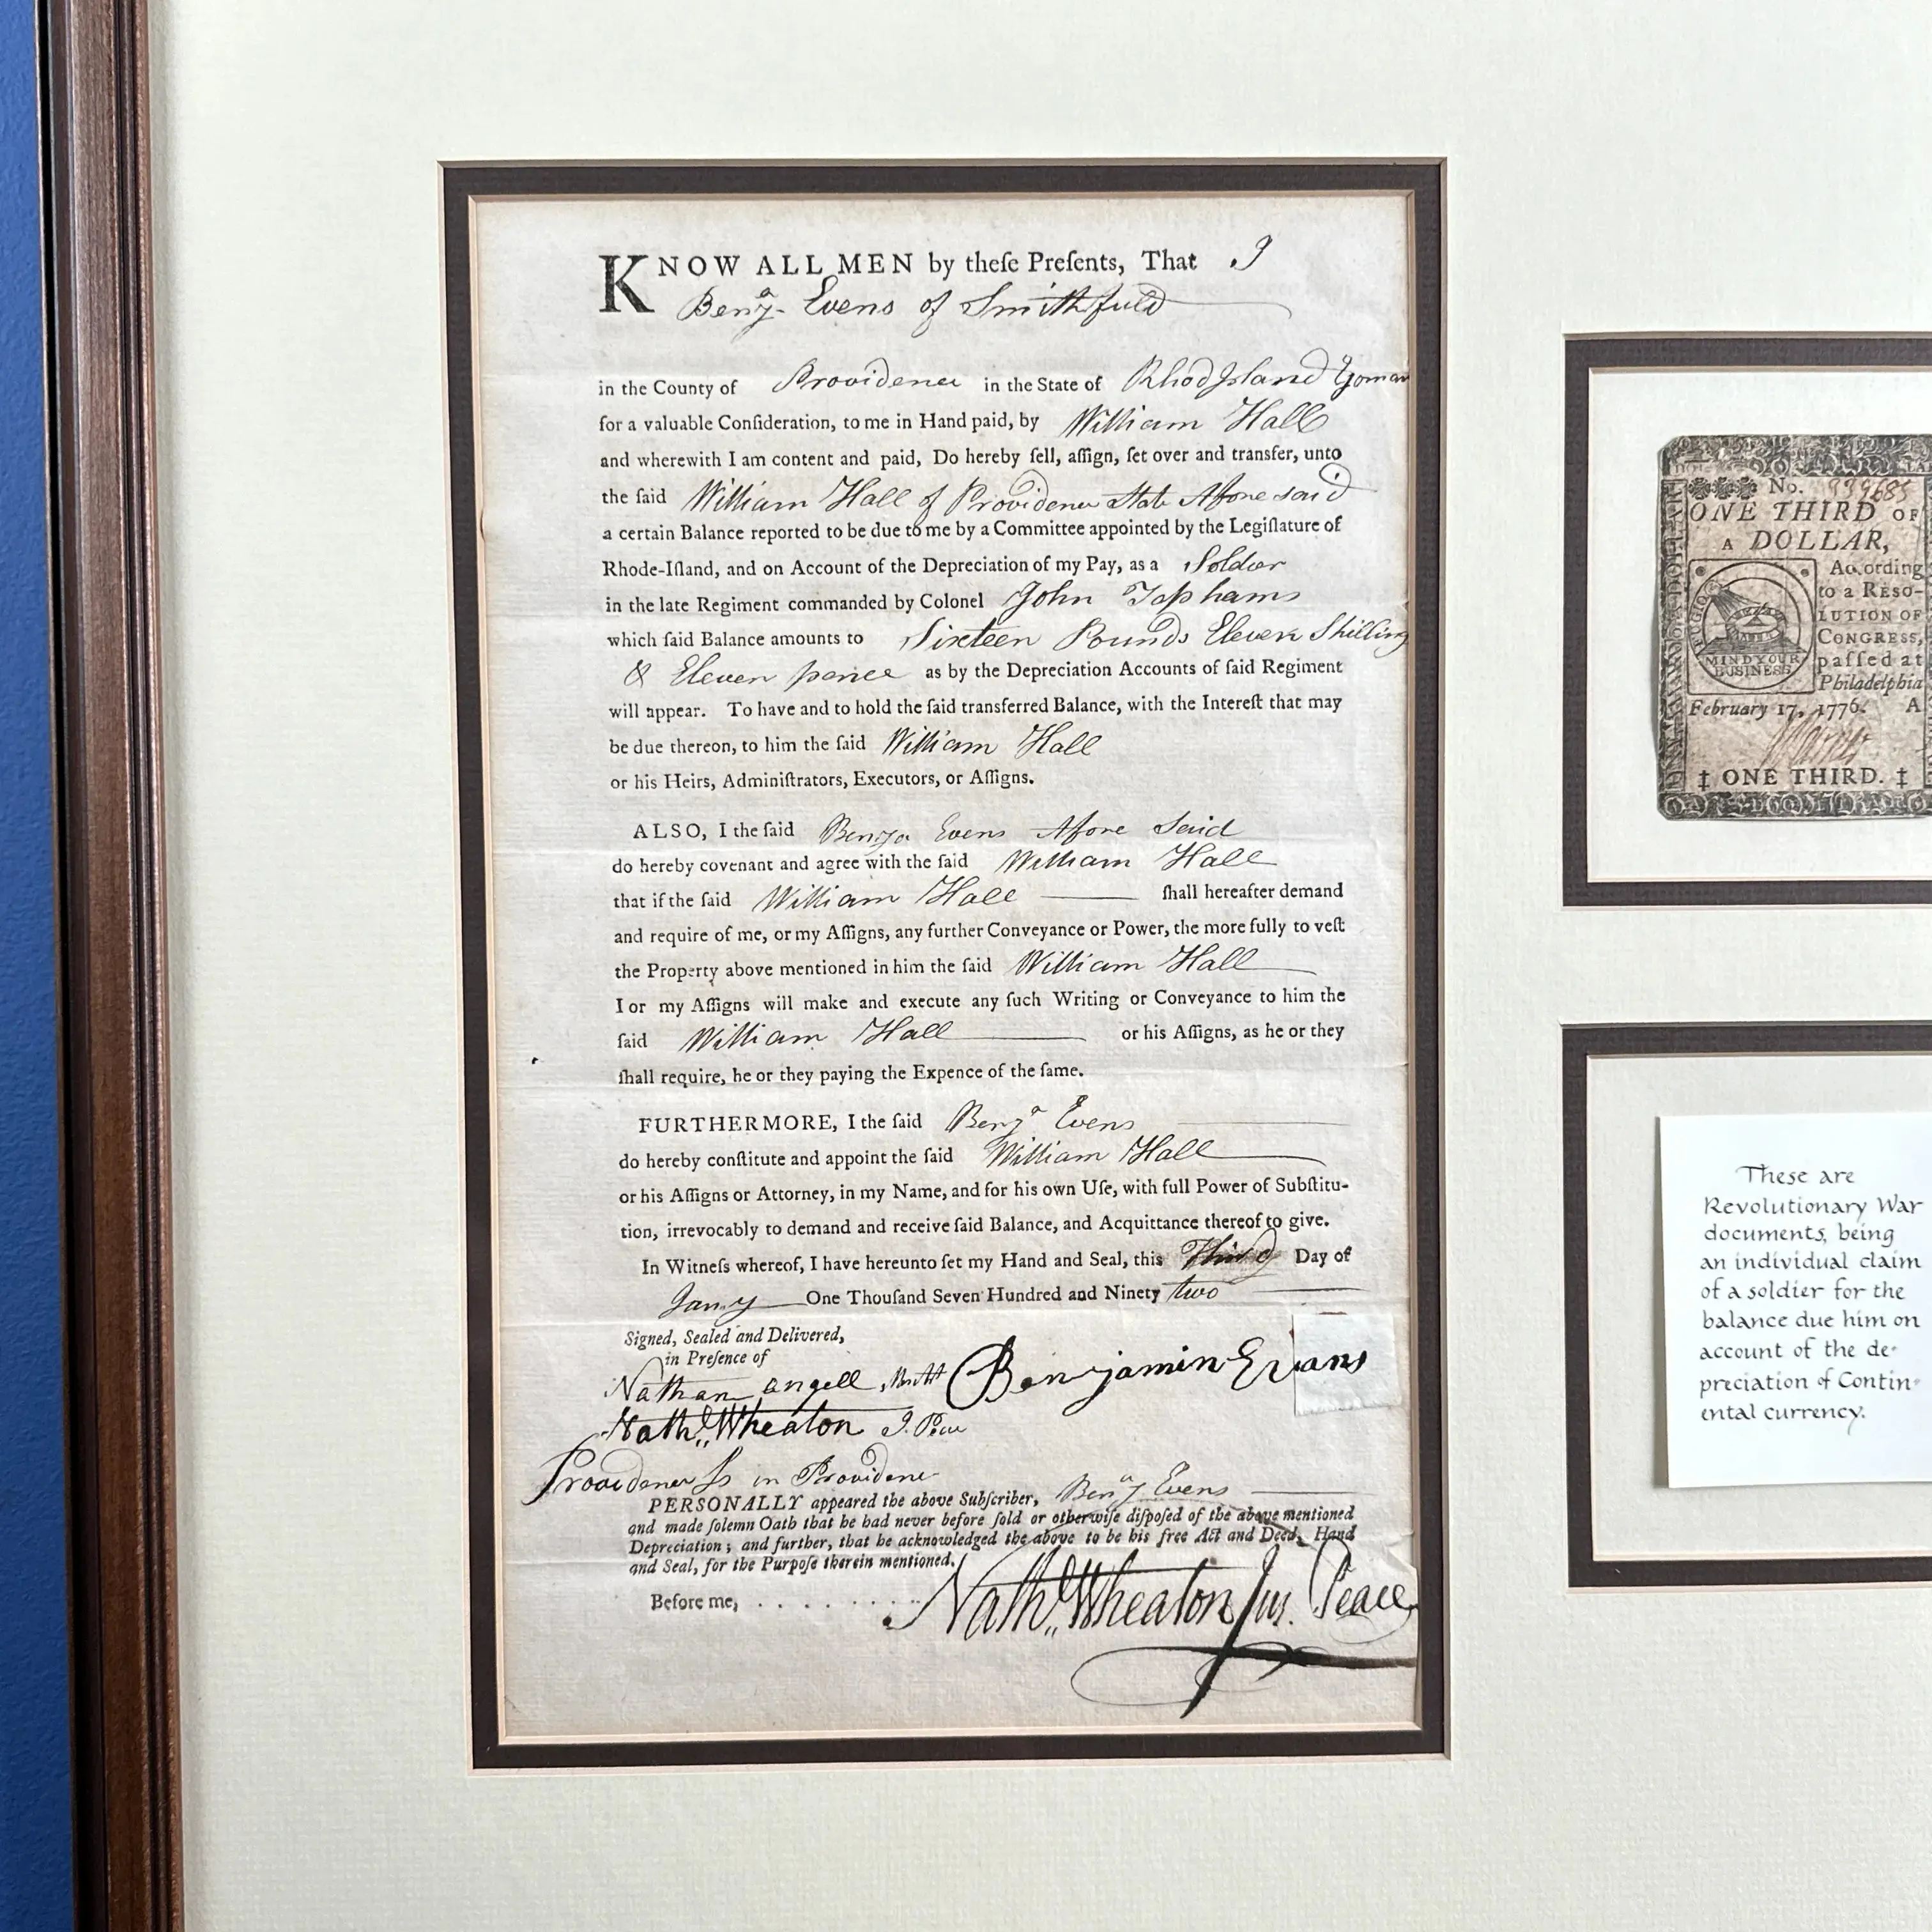 KNOW ALL MEN by theſe Preſents, That I
Benjᵃ Evens of Smithfield
in the County of Providence in the State of Rhod Island Yoman
for a valuable Conſideration, to me in Hand paid, by William Hall
and wherewith I am content and paid, Do hereby ſell, aſſign, ſet over and transfer, unto
the ſaid William Hall of Providence State Afore said
a certain Balance reported to be due to me by a Committee appointed by the Legiſlature of
Rhode-Iſland, and on Account of the Depreciation of my Pay, as a Soldier
in the late Regiment commanded by Colonel John Tophams
which ſaid Balance amounts to Sixteen Pounds Eleven Shilling
& Eleven pence as by the Depreciation Accounts of ſaid Regiment
will appear. To have and to hold the ſaid transferred Balance, with the Intereſt that may
be due thereon, to him the ſaid William Hall
or his Heirs, Adminiſtrators, Executors, or Aſſigns.
ALSO, I the ſaid Benja Evens Afore Said
do hereby covenant and agree with the ſaid William Hall
that if the ſaid William Hall ſhall hereafter demand
and require of me, or my Aſſigns, any further Conveyance or Power, the more fully to veſt
the Property above mentioned in him the ſaid William Hall
I or my Aſſigns will make and execute any ſuch Writing or Conveyance to him the
ſaid William Hall or his Aſſigns, as he or they
ſhall require, he or they paying the Expence of the ſame.
FURTHERMORE, I the ſaid Benjᵃ Evens
do hereby conſtitute and appoint the ſaid William Hall
or his Aſſigns or Attorney, in my Name, and for his own Uſe, with full Power of Subſtitu-
tion, irrevocably to demand and receive ſaid Balance, and Acquittance thereof to give.
In Witneſs whereof, I have hereunto ſet my Hand and Seal, this Third Day of
Jany One Thouſand Seven Hundred and Ninety two
Signed, Sealed and Delivered,
in Preſence of
Nathan angell Benjamin Evans
Nathˡ Wheaton J. Peace
Providence Ss in Providence
PERSONALLY appeared the above Subſcriber, Benjᵃ Evens
and made ſolemn Oath that he had never before ſold or otherwiſe diſpoſed of the above mentioned
Depreciation; and further, that he acknowledged the above to be his free Act and Deed, Hand
and Seal, for the Purpoſe therein mentioned.
Before me, . . . . . . . . Nathˡ Wheaton Jus. Peace
No. 939685
ONE THIRD OF
A DOLLAR,
According
to a RESO-
LUTION OF
CONGRESS,
paſſed at
Philadelphia
February 17, 1776.
FUGIO
MIND YOUR
BUSINESS
‡ ONE THIRD. ‡
These are
Revolutionary War
documents, being
an individual claim
of a soldier for the
balance due him on
account of the de-
preciation of Contin-
ental currency.